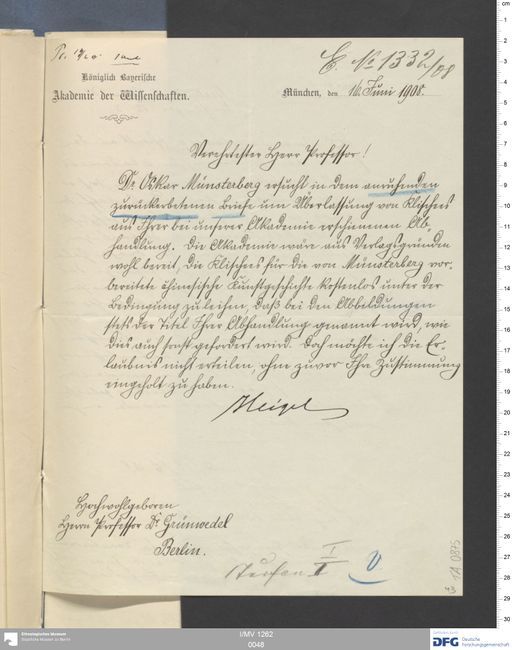 E. № 1332/08
Königlich Bayerische
Akademie der Wissenschaften.
München, den 16. Juni 1908.
Verehrtester Herr Professor!
Dr. Oskar Münsterberg ersucht in dem anruhenden
zurückerbetenen Briefe um Überlassung von Klischees
aus Ihrer bei unserer Akademie erschienenen Ab-
handlung. Die Akademie wäre aus Verlagsgründen
wohl bereit, die Klischees für die von Münsterberg vor-
bereitete chinesische Kunstgeschichte kostenlos unter der
Bedingung zu leihen, daß bei den Abbildungen
stets der Titel Ihrer Abhandlung genannt wird, wie
dies auch sonst gefordert wird. Doch möchte ich die Er-
laubnis nicht erteilen, ohne zuvor Ihre Zustimmung
eingeholt zu haben.
Heigel
Hochwohlgeboren
Herrn Professor Dr. Grünwedel
Berlin.
Turfan
I
I
1A 0875
43
Ethnologisches Museum
Staatliche Museen zu Berlin
I/MV 1262
0048
DFG
Deutsche
Forschungsgemeinschaft
cm
1
2
3
4
5
6
7
8
9
10
11
12
13
14
15
16
17
18
19
20
21
22
23
24
25
26
27
28
29
30